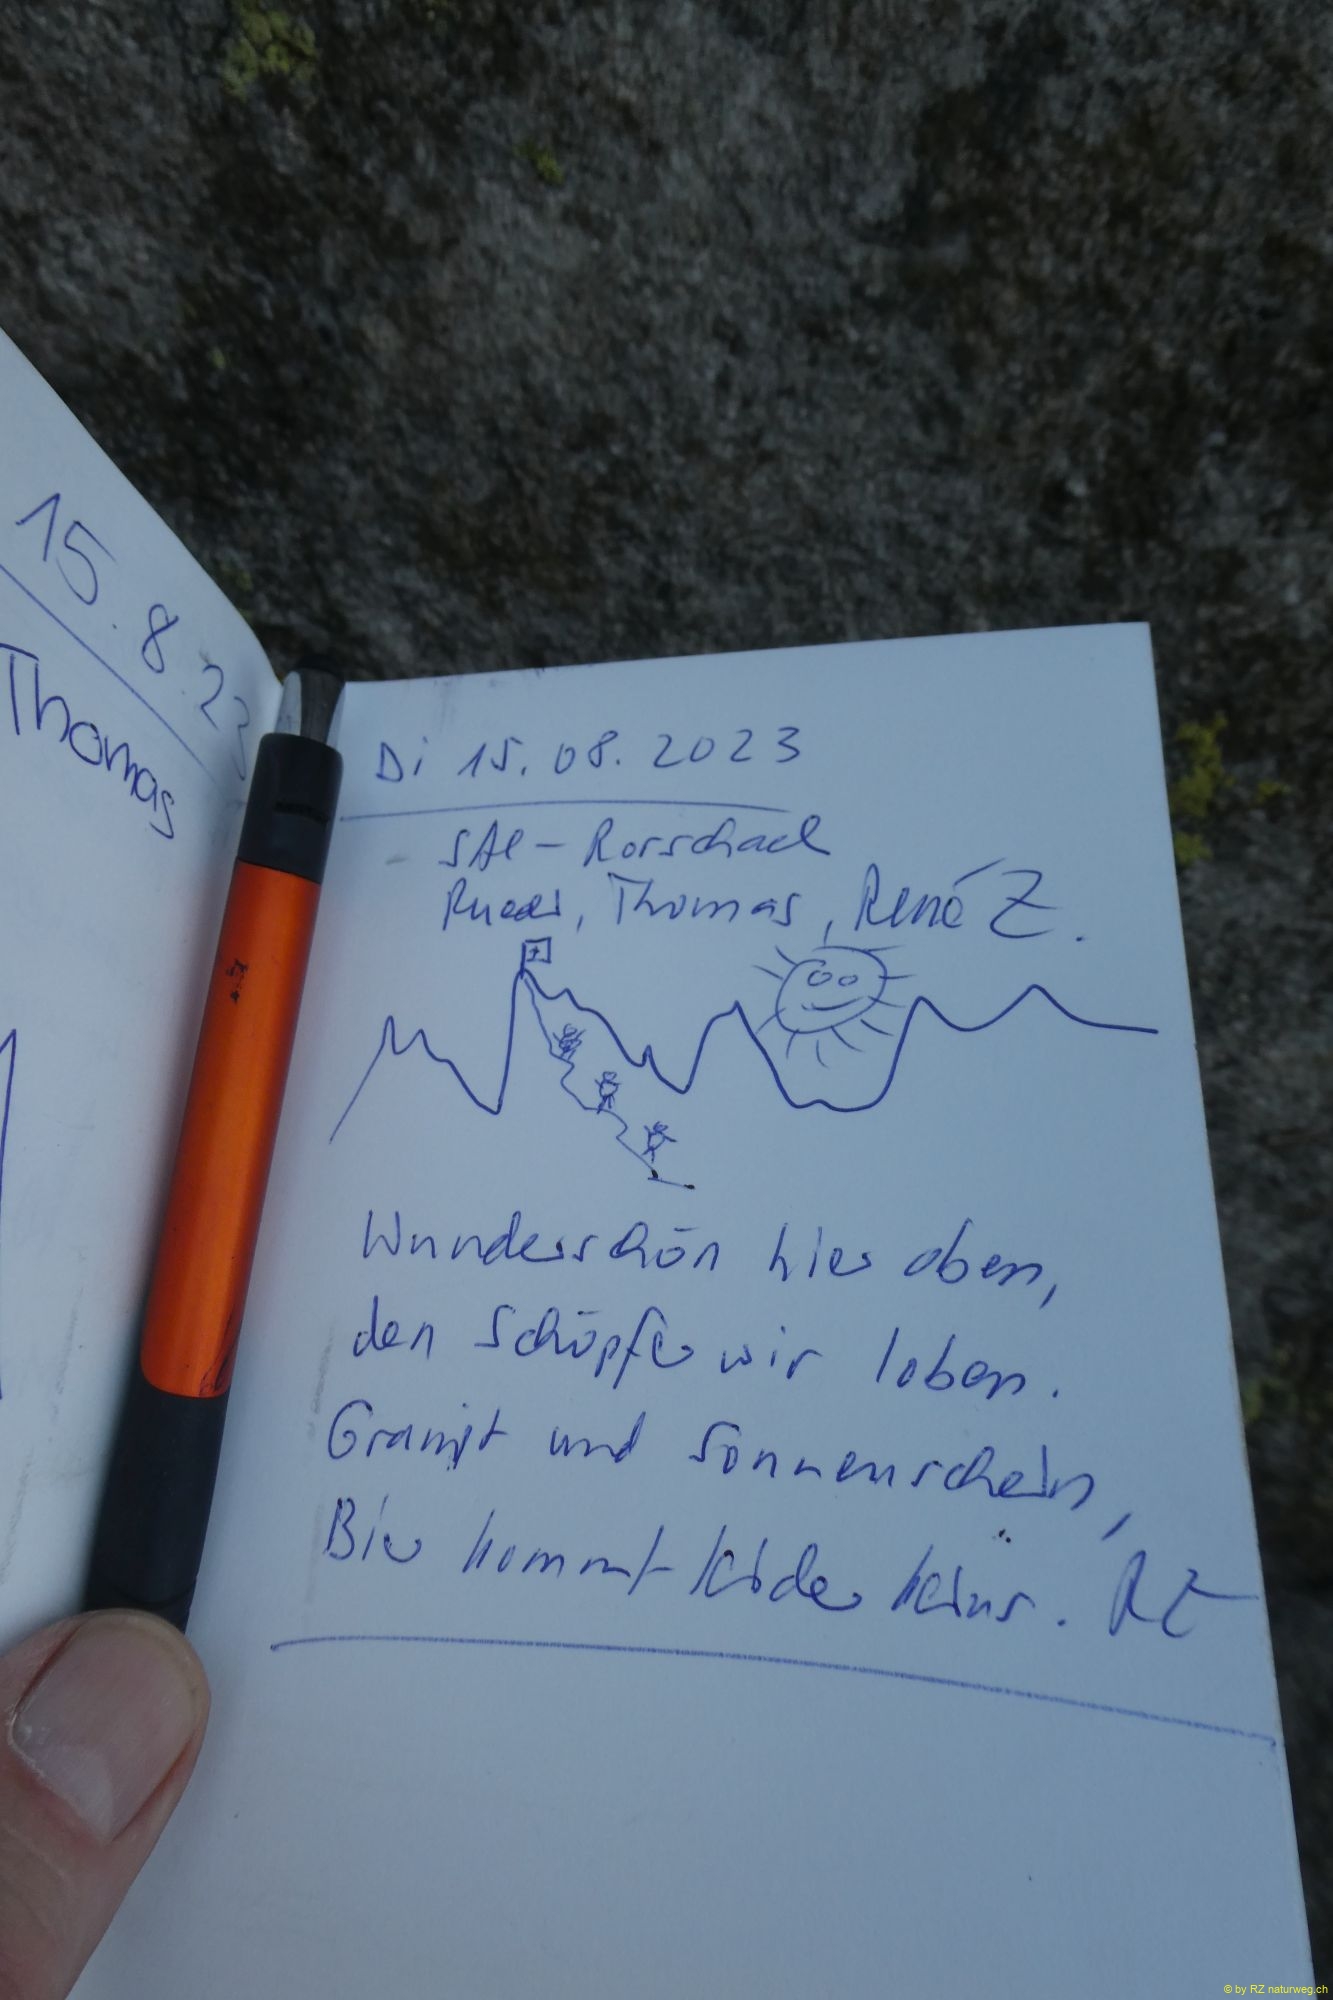 15.8.23
Thomas
Di 15.08.2023
SAC - Rorschach
Ruedi, Thomas, René Z.
Wunderschön hier oben,
den Schöpfer wir loben.
Granit und Sonnenschein,
Bier kommt leider keins. RZ
© by RZ naturweg.ch